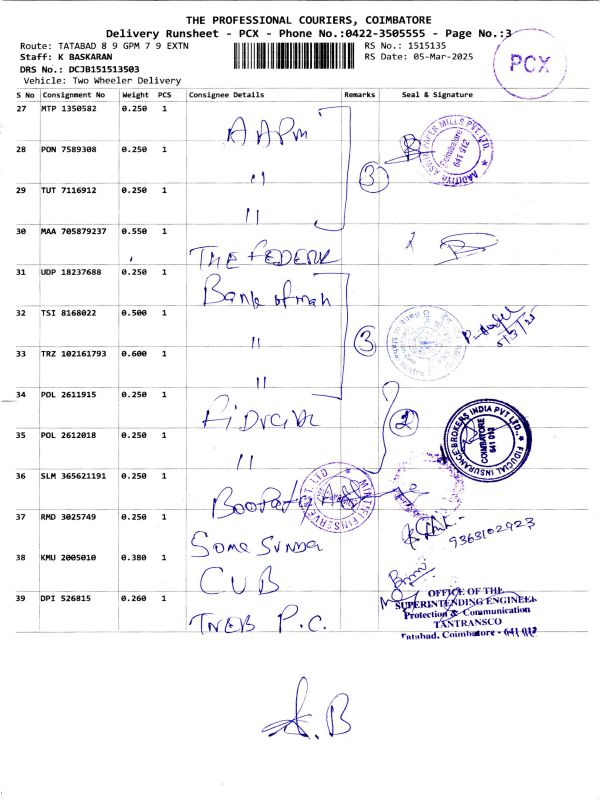 THE PROFESSIONAL COURIERS, COIMBATORE
Delivery Runsheet - PCX - Phone No.:0422-3505555 - Page No.:3
Route: TATABAD 8 9 GPM 7 9 EXTN
RS No.: 1515135
Staff: K BASKARAN
RS Date: 05-Mar-2025
DRS No.: DCJB151513503
Vehicle: Two Wheeler Delivery
PCX
S No Consignment No Weight PCS Consignee Details Remarks Seal & Signature
27 MTP 1350582 0.250 1 AAPM
28 PON 7589308 0.250 1 "
29 TUT 7116912 0.250 1 "
3
AADITYA ASWIN PAPER MILLS PVT. LTD.
Coimbatore
641 012
30 MAA 705879237 0.550 1 THE FEDERAL
31 UDP 18237688 0.250 1 Bank of mah
32 TSI 8168022 0.500 1 "
33 TRZ 102161793 0.600 1 "
3
5/3/25
34 POL 2611915 0.250 1 FiDuciaL
35 POL 2612018 0.250 1 "
2
FIDUCIAL INSURANCE BROKERS INDIA PVT LTD.
COIMBATORE
641 012
36 SLM 365621191 0.250 1
37 RMD 3025749 0.250 1 Soma Sunda
9363102923
38 KMU 2005010 0.380 1 CUB
39 DPI 526815 0.260 1 TNEB P.C.
OFFICE OF THE
SUPERINTENDING ENGINEER
Protection & Communication
TANTRANSCO
Tatabad, Coimbatore - 641 012
A.B